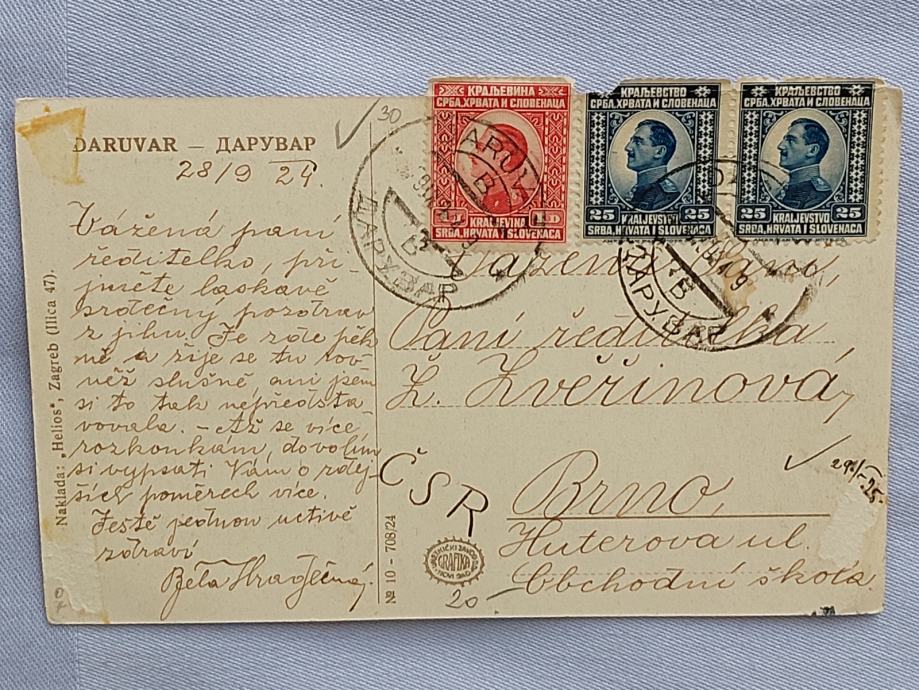 DARUVAR — ДАРУВАР
28/9 24.
Vážená paní
ředitelko, při-
jměte laskavě
srdečný pozdrav
z jihu. Je zde pěk
ně a žije se tu rov-
něž slušně, ani jsem
si to tak nepředsta-
vovala. – Až se více
rozkoukám, dovolím
si vypsati Vám o zdej-
ších poměrech více.
Ještě jednou uctivě
zdraví
Běla
Naklada: „Helios", Zagreb (Ilica 47).
30
КРАЉЕВИНА
СРБА, ХРВАТА И СЛОВЕНАЦА
1 D
KRALJEVINA
SRBA, HRVATA I SLOVENACA
КРАЉЕВСТВО
СРБА, ХРВАТА И СЛОВЕНАЦА
25 KRALJEVSTVO 25
SRBA, HRVATA I SLOVENACA
КРАЉЕВСТВО
СРБА, ХРВАТА И СЛОВЕНАЦА
25 KRALJEVSTVO 25
SRBA, HRVATA I SLOVENACA
DARUVAR
ДАРУВАР
ДАРУВАР
Vážená paní,
Paní ředitelka
Z. Zvěřinová,
Brno,
Huterova ul.
Obchodní škola
ČSR
№ 10 - 708/24
GRAFIKA
20